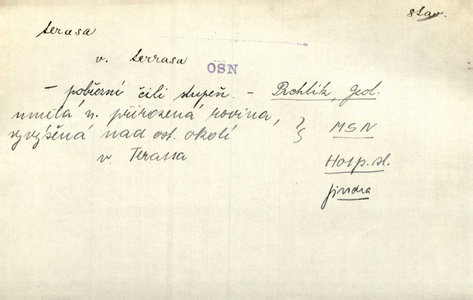 8 Stav.
terasa
v. terrasa
OSN
– pobřežní čili stupeň. – Prchlík, Geol.
umělá n. přirozená rovina,
vyvýšená nad ost. okolí
MSN
v. Terassa
Hosp. sl.
Jindra